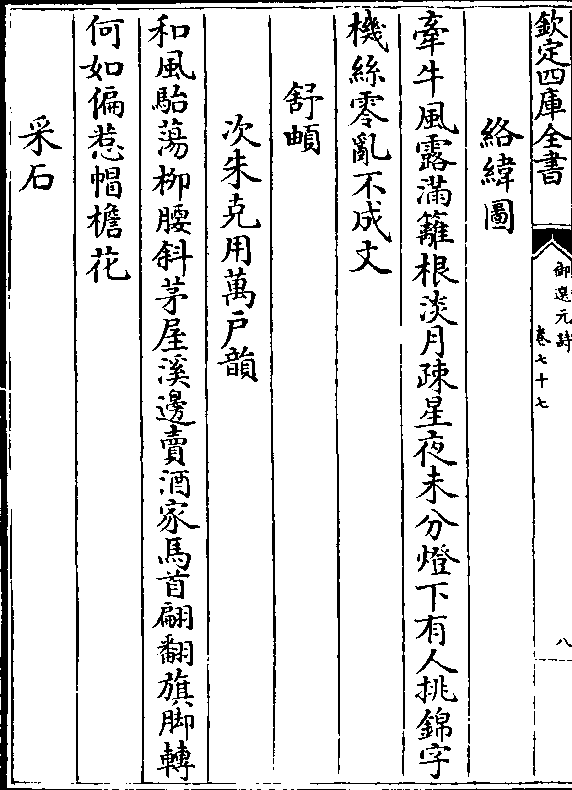 欽定四庫全書
御選元詩
卷七十七
八
絡緯圖
牽牛風露滿籬根淡月疎星夜未分燈下有人挑錦字
機絲零亂不成文
舒頔
次朱克用萬戶韻
和風駘蕩柳腰斜茅屋溪邊賣酒家馬首翩翻旗脚轉
何如偏惹帽檐花
采石